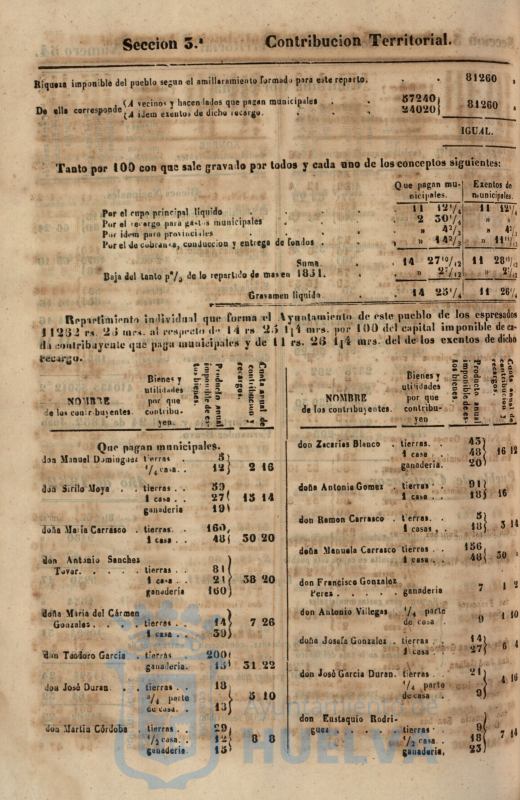 Seccion 3.ª Contribucion Territorial.
Riqueza imponible del pueblo segun el amillaramiento formado para este reparto. 81260
De ella corresponde (A vecinos y hacendados que pagan municipales 57240
(A idem exentos de dicho recargo. 24020 81260
IGUAL.
Tanto por 100 con que sale gravado por todos y cada uno de los conceptos siguientes:
Que pagan municipales. Exentos de municipales.
Por el cupo principal líquido 11 12 1/4 11 12 1/4
Por el recargo para gastos municipales 2 30 1/4 »
Por idem para provinciales » 4 2/3 » 4 2/3
Por el de cobranza, conduccion y entrega de fondos
Suma 14 27 10/12 11 28
Baja del tanto p% de lo repartido de mas en 1851.
Gravamen líquido 14 25 1/4 11 26 1/4
Repartimiento individual que forma el Ayuntamiento de este pueblo de los espresados
11282 rs. 25 mrs. al respecto de 14 rs 25 1|4 mrs. por 100 del capital imponible de ca-
da contribuyente que paga municipales y de 11 rs. 26 1|4 mrs. del de los exentos de dicho
recargo.
NOMBRE de los contribuyentes.
Bienes y utilidades por que contribuyen.
Producto anual imponible de estos bienes.
Cuota anual de contribucion y recargos.
Que pagan municipales.
don Manuel Dominguez tierras 5
1/4 casa. 12 2 16
don Sirilo Moya tierras 59
1 casa 27 15 14
ganaderia 19
doña Maria Carrasco tierras. 160
1 casa 48 30 20
don Antonio Sanchez
Tovar. tierras 81
1 casa 21 38 20
ganaderia 160
doña Maria del Cármen
Gonzalez. tierras 14 7 26
1 casa 39
don Teodoro Garcia tierras 200
ganaderia. 15 31 22
don José Duran tierras 18
3/4 parte de casa. 13 5 10
don Martin Córdoba tierras 29
1/2 casa. 12 8 8
ganaderia 15
NOMBRE de los contribuyentes.
Bienes y utilidades por que contribuyen
Producto anual imponible de estos bienes.
Cuota anual de contribucion y recargos.
don Zacarias Blanco tierras. 43
1 casa 48 16 12
ganaderia. 20
doña Antonia Gomez tierras. 91
1 casa 18 16
don Ramon Carrasco tierras. 5
1 casas 18 3 14
doña Manuela Carrasco tierras 156
1 casa 48 30
don Francisco Gonzalez
Perez ganaderia 7 1 2
don Antonio Villegas 1/4 parte
de casa 9 1 10
doña Josefa Gonzalez tierras 14
1 casa 27 6 4
don José Garcia Duran. tierras 21
1/4 parte
de casa 9 4 16
don Eustaquio Rodri-
guez tierras 9
1/2 casa 18 7 14
ganaderia. 23
Ayuntamiento
HUELVA